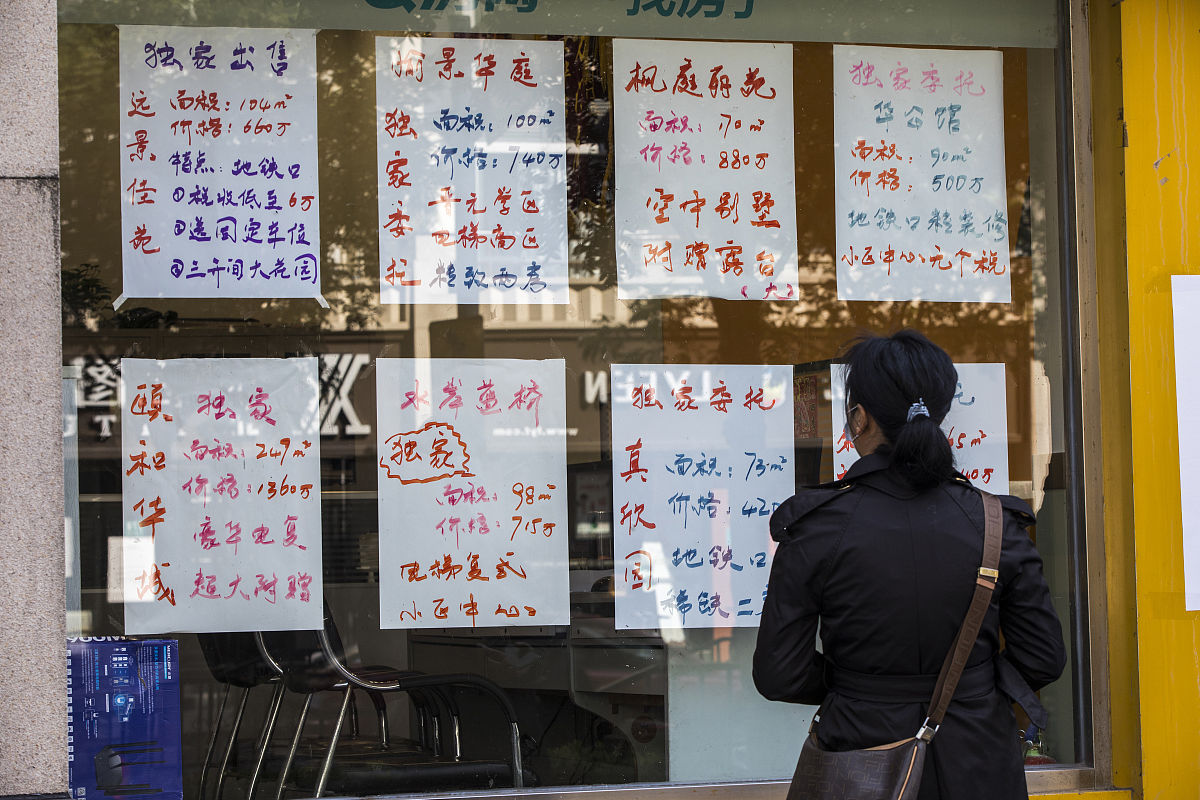 找房子
独家出售
远景佳苑
面积:104m²
价格:660万
特点:地铁口
①税收低至6万
②送固定车位
③三开间大花园
愉景华庭
独家委托
面积:100m²
价格:740万
平元学区
电梯高区
精致两房
枫庭丽苑
面积:70m²
价格:880万
空中别墅
附赠露台
(大)
独家委托
华公馆
面积:90m²
价格:500万
地铁口精装修
小区中心无个税
颐和华城
独家
面积:249m²
价格:1360万
豪华电复
超大附赠
水岸莲桥
独家
面积:98m²
价格:715万
电梯复式
小区中心
独家委托
真欣园
面积:73m²
价格:42
地铁口
稀缺二
托
65m²
40万